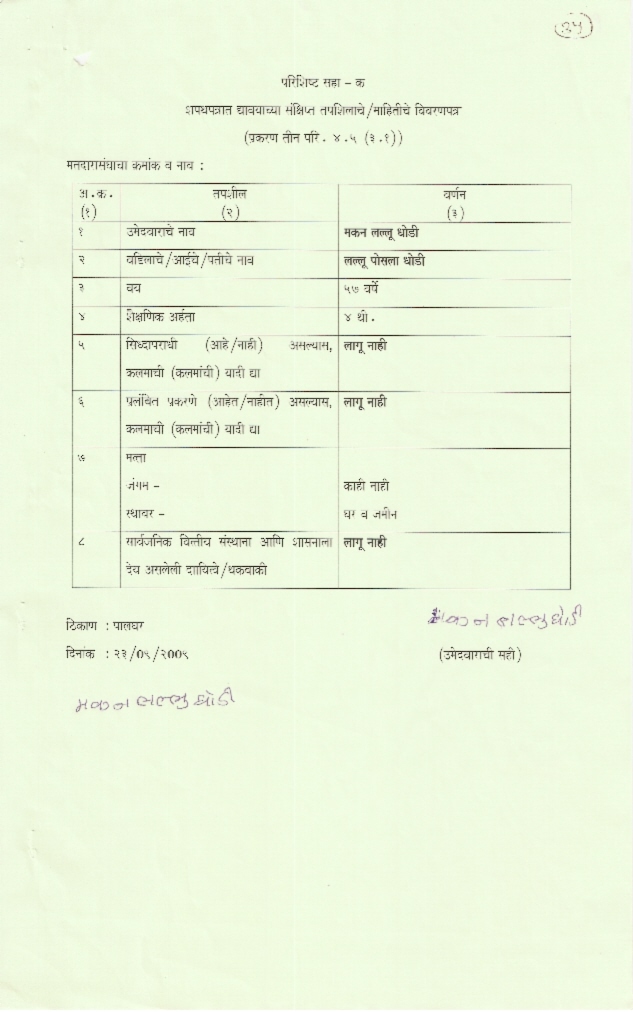 २५
परिशिष्ट सहा - क
शपथपत्रात द्यावयाच्या संक्षिप्त तपशिलाचे/माहितीचे विवरणपत्र
(प्रकरण तीन परि. ४.५ (३.१))
मतदारसंघाचा कमांक व नाव :
अ.क्र. तपशील वर्णन
(१) (२) (३)
१ उमेदवाराचे नाव मकन लल्लू धोडी
२ वडिलाचे/आईचे/पतीचे नाव लल्लू पोसला धोडी
३ वय ५७ वर्षे
४ शैक्षणिक अर्हता ४ थी.
५ सिध्दापराधी (आहे/नाही) असल्यास, लागू नाही
कलमाची (कलमांची) यादी द्या
६ प्रलंबित प्रकरणे (आहेत/नाहीत) असल्यास, लागू नाही
कलमाची (कलमांची) यादी द्या
७ मत्ता
जंगम - काही नाही
स्थावर - घर व जमीन
८ सार्वजनिक वित्तीय संस्थाना आणि शासनाला लागू नाही
देय असलेली दायित्वे/थकबाकी
मकन लल्लु धोडी
ठिकाण : पालघर
दिनांक : २३/०९/२००९ (उमेदवाराची सही)
मकन लल्लु धोडी